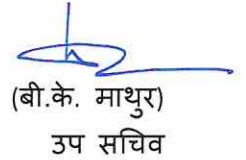 (बी.के. माथुर)
उप सचिव